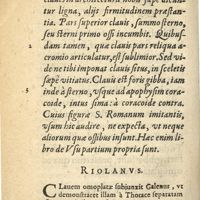 tur ligna, aliji firmitudinem præstan-
tia. Pars superior clauis, summo sterno,
seu sterni primo ossi incumbit. Quibus-
dam tamen, quæ clauis pars reliqua a-
cromio articulatur, est sublimior. Sed vi-
de ne tibi imponat clauis situs, in sceletis
sæpè vitiatus. Clauis est foris gibba, iam
inde à sterno, vsque ad apophysim cora-
coide, intus sima: à coracoide contra.
Cuius figuræ S. Romanum imitantis,
vsum hic audire, ne expecta, vt neque
aliorum quæ ossibus insunt. Hæc enim li-
bro de Vsu partium propria sunt.
RIOLANVS.
CLauem omoplatæ subiunxit Galenus, vt
demonstraret illam à Thorace separatam